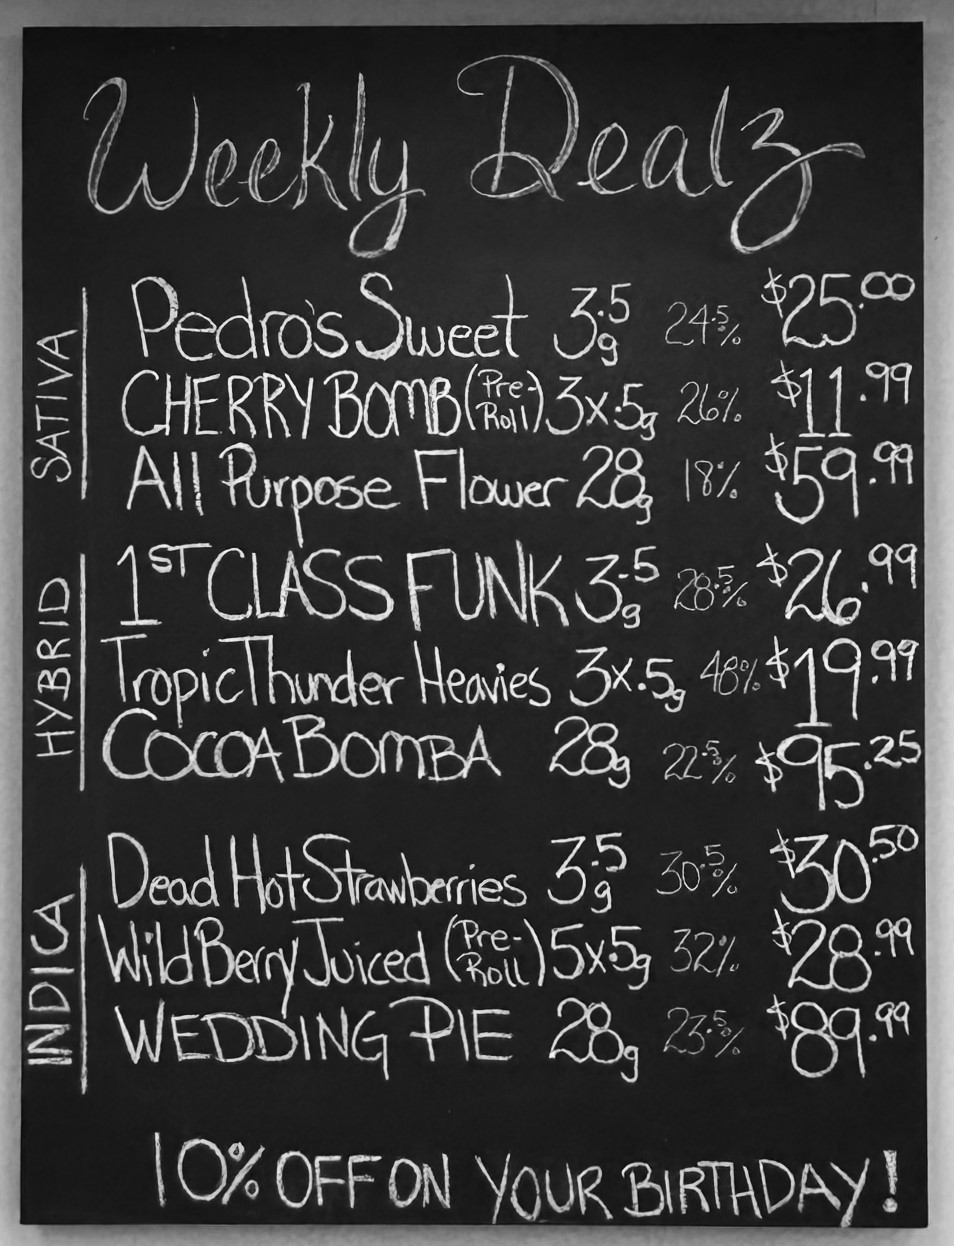 Weekly Dealz
SATIVA
Pedro's Sweet 3.5g 24.5% $25.00
CHERRY BOMB (Pre-Roll) 3x.5g 26% $11.99
All Purpose Flower 28g 18% $59.99
HYBRID
1ST CLASS FUNK 3.5g 28.5% $26.99
Tropic Thunder Heavies 3x.5g 48% $19.99
COCOA BOMBA 28g 22.5% $95.25
INDICA
Dead Hot Strawberries 3.5g 30.5% $30.50
Wild Berry Juiced (Pre-Roll) 5x.5g 32% $28.99
WEDDING PIE 28g 23.5% $89.99
10% OFF ON YOUR BIRTHDAY!